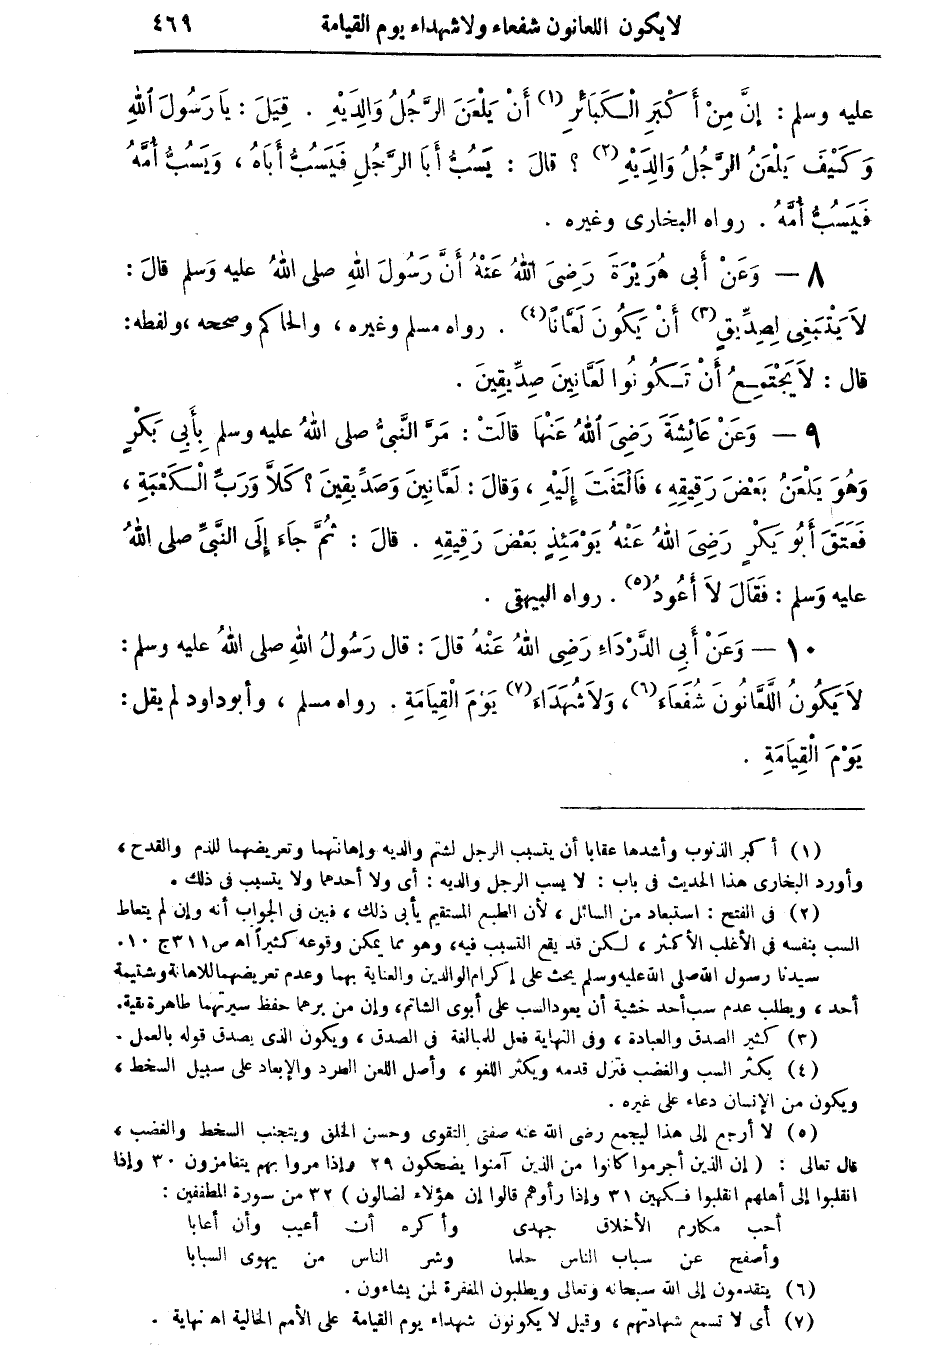 لايكون اللعانون شفعاء ولاشهداء يوم القيامة ٤٦٩
عليه وسلم : إِنَّ مِنْ أَكْبَرِ الْكَبَائِرِ (١) أَنْ يَلْعَنَ الرَّجُلُ وَالِدَيْهِ . قِيلَ : يَا رَسُولَ اللهِ
وَكَيْفَ يَلْعَنُ الرَّجُلُ وَالِدَيْهِ (٢) ؟ قالَ : يَسُبُّ أَبَا الرَّجُلِ فَيَسُبُّ أَبَاهُ ، وَيَسُبُّ أُمَّهُ
فَيَسُبُّ أُمَّهُ . رواه البخارى وغيره .
٨ — وَعَنْ أَبِى هُرَيْرَةَ رَضِىَ اللهُ عَنْهُ أَنَّ رَسُولَ اللهِ صلى اللهُ عليه وَسلم قالَ :
لاَ يَنْبَغِى لِصِدِّيقٍ (٣) أَنْ يَكُونَ لَعَّانًا (٤) . رواه مسلم وغيره ، والحاكم وصححه ، ولفظه :
قال : لاَ يَجْتَمِعُ أَنْ تَكُونُوا لَعَّانِينَ صِدِّيقِينَ .
٩ — وَعَنْ عَائِشَةَ رَضِىَ اللهُ عَنْهَا قالَتْ : مَرَّ النَّبىُّ صلى اللهُ عليه وسلم بِأَبِى بَكْرٍ
وَهُوَ يَلْعَنُ بَعْضَ رَقِيقِهِ ، فَالْتَفَتَ إِلَيْهِ ، وَقالَ : لَعَّانِينَ وَصِدِّيقِينَ ؟ كَلاَّ وَرَبِّ الْكَعْبَةِ ،
فَعَتَقَ أَبُو بَكْرٍ رَضِىَ اللهُ عَنْهُ يَوْمَئِذٍ بَعْضَ رَقِيقِهِ . قالَ : ثُمَّ جَاءَ إِلَى النَّبِىِّ صلى اللهُ
عليه وَسلم : فَقَالَ لاَ أَعُودُ (٥) . رواه البيهقى .
١٠ — وَعَنْ أَبِى الدَّرْدَاءِ رَضِىَ اللهُ عَنْهُ قالَ : قال رَسُولُ اللهِ صلى اللهُ عليه وسلم :
لاَ يَكُونُ اللَّعَّانُونَ شُفَعَاءَ (٦) ، وَلاَ شُهَدَاءَ (٧) يَوْمَ الْقِيَامَةِ . رواه مسلم ، وأبو داود لم يقل :
يَوْمَ الْقِيَامَةِ .
(١) أكبر الذنوب وأشدها عقابا أن يتسبب الرجل لشتم والديه وإهانتهما وتعريضهما للذم والقدح ،
وأورد البخارى هذا الحديث فى باب : لا يسب الرجل والديه : أى ولا أحدهما ولا يتسبب فى ذلك .
(٢) فى الفتح : استبعاد من السائل ، لأن الطبع المستقيم يأبى ذلك ، فبين فى الجواب أنه وإن لم يتعاط
السب بنفسه فى الأغلب الأكثر ، لكن قد يقع التسبب فيه ، وهو مما يمكن وقوعه كثيراً اه ص ٣١١ ج ١٠ .
سيدنا رسول الله صلى الله عليه وسلم يحث على إكرام الوالدين والعناية بهما وعدم تعريضهما للاهانة وشتيمة
أحد ، ويطلب عدم سب أحد خشية أن يعود السب على أبوى الشاتم ، وإن من برهما حفظ سيرتهما طاهرة نقية .
(٣) كثير الصدق والعبادة ، وفى النهاية فعل للمبالغة فى الصدق ، ويكون الذى يصدق قوله بالعمل .
(٤) يكثر السب والغضب فتزل قدمه ويكثر اللغو ، وأصل اللعن الطرد والإبعاد على سبيل السخط ،
ويكون من الإنسان دعاء على غيره .
(٥) لا أرجع إلى هذا ليجمع رضى الله عنه صفتى التقوى وحسن الخلق ويتجنب السخط والغضب ،
قال تعالى : ( إن الذين أجرموا كانوا من الذين آمنوا يضحكون ٢٩ وإذا مروا بهم يتغامزون ٣٠ وإذا
انقلبوا إلى أهلهم انقلبوا فكهين ٣١ وإذا رأوهم قالوا إن هؤلاء لضالون ) ٣٢ من سورة المطففين :
أحب مكارم الأخلاق جهدى وأكره أن أعيب وأن أعابا
وأصفح عن سباب الناس حلما وشر الناس من يهوى السبابا
(٦) يتقدمون إلى الله سبحانه وتعالى ويطلبون المغفرة لمن يشاءون .
(٧) أى لا تسمع شهادتهم ، وقيل لا يكونون شهداء يوم القيامة على الأمم الخالية اه نهاية .